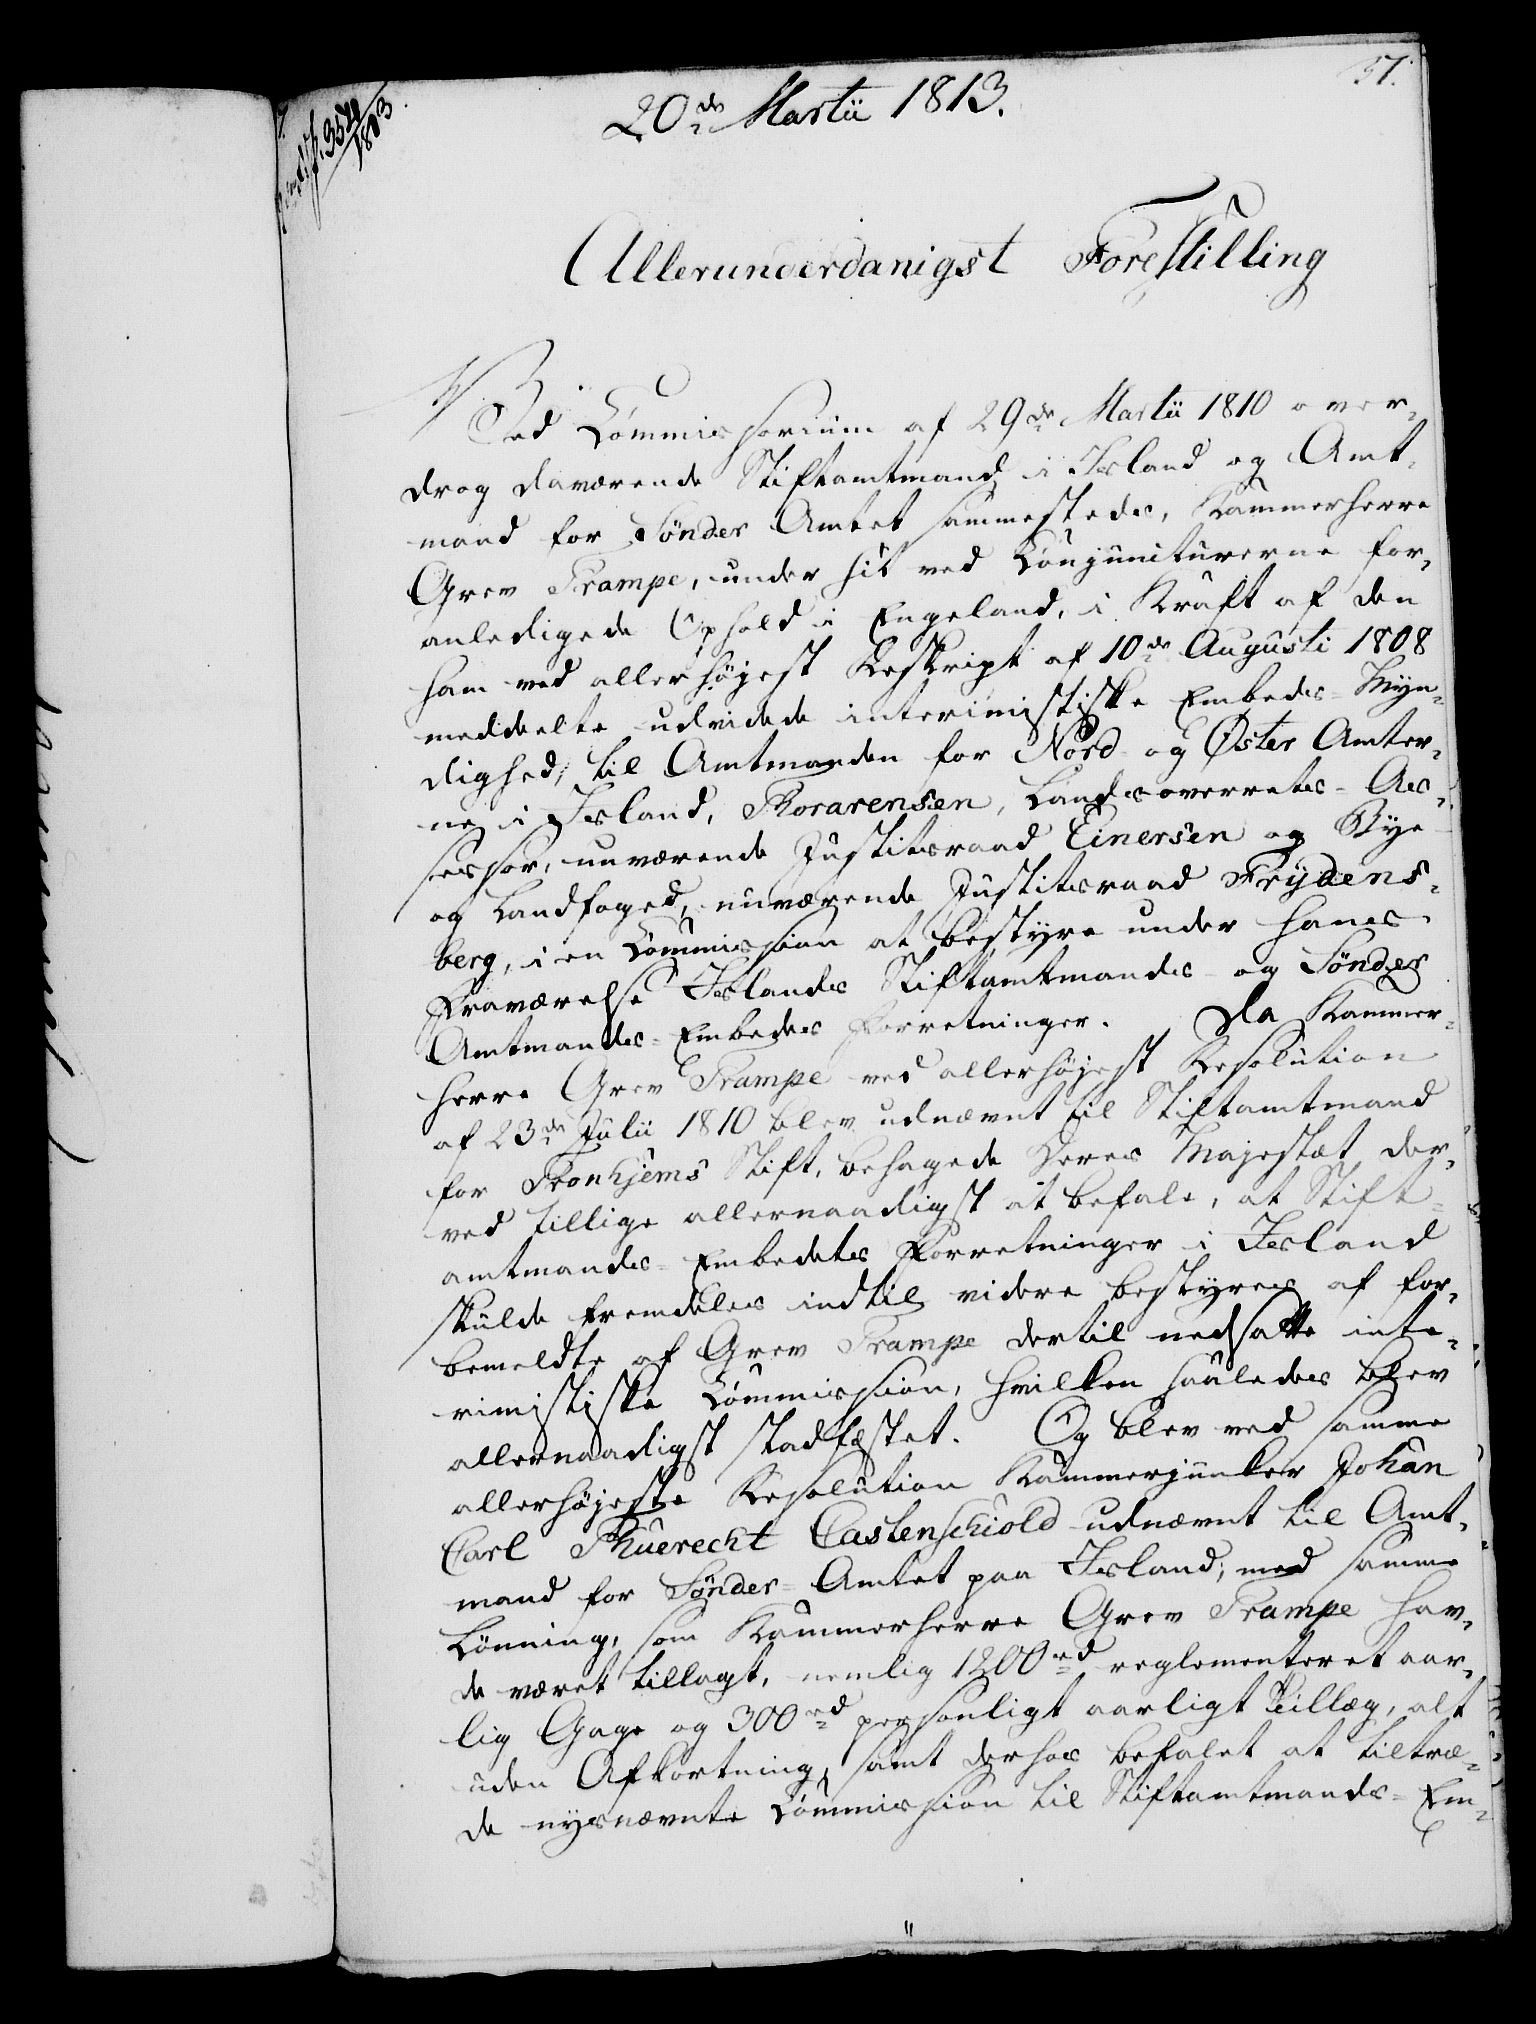 57.
20de Martii 1813.
Allerunderdanigst Forestilling
Ved Commissorium af 29de Martii 1810 over-
drog daværende Stiftamtmand i Island og Amt-
mand for Sønder Amtet sammesteds, Kammerherre
Grev Trampe, under sit ved Conjuncturerne for-
anledigede Ophold i Engeland, i Kraft af den
ham ved allerhøjest Reskript af 10de Augusti 1808
meddeelte udvidede interimistiske Embeds-Myn-
dighed, til Amtmanden for Nord- og Øster Amter-
ne i Island, Thorarensen, Landsoverrets-As-
sessor, nuværende Justitsraad Einersen og Bye-
og Landfoged, nuværende Justitsraad Frydens-
berg, i en Commission at bestyre under hans
Fraværelse Islands Stiftamtmands- og Sønder
Amtmands-Embeders Forretninger. Da Kammer-
herre Grev Trampe ved allerhøjest Resolution
af 23de Julii 1810 blev udnævnt til Stiftamtmand
for Tronhjems Stift, behagede Deres Majestæt der-
ved tillige allernaadigst at befale, at Stift-
amtmands-Embedets Forretninger i Island
skulde fremdeles indtil videre bestyres af for-
bemeldte af Grev Trampe dertil nedsatte inte-
rimistiske Commission, hvilken saaledes blev
allernaadigst stadfæstet. Og blev ved samme
allerhøjeste Resolution Kammerjunker Johan
Carl Thuerecht Castenschiold udnævnt til Amt-
mand for Sønder-Amtet paa Island, med samme
Lønning, som Kammerherre Grev Trampe hav-
de været tillagt, nemlig 1200 rd reglementeret aar-
lig Gage og 300 rd personligt aarligt Tillæg, alt
uden Afkortning, samt derhos befalet at tiltræ-
de nysnævnte Commission til Stiftamtmands-Em-